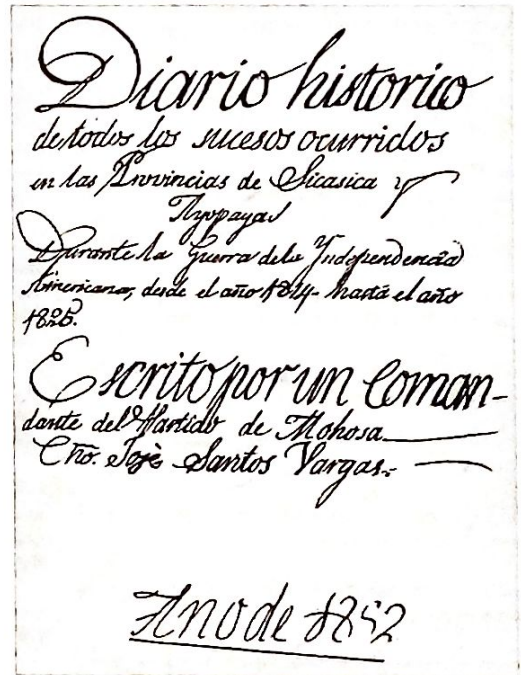 Diario historico
de todos los sucesos ocurridos
en las Provincias de Sicasica y
Ayopaya
Durante la Guerra dela Independencia
Americana, desde el año 1814- hasta el año
1825.
Escrito por un Coman-
dante del Partido de Mohosa
Cño. Josè Santos Vargas.
Ano de 1852